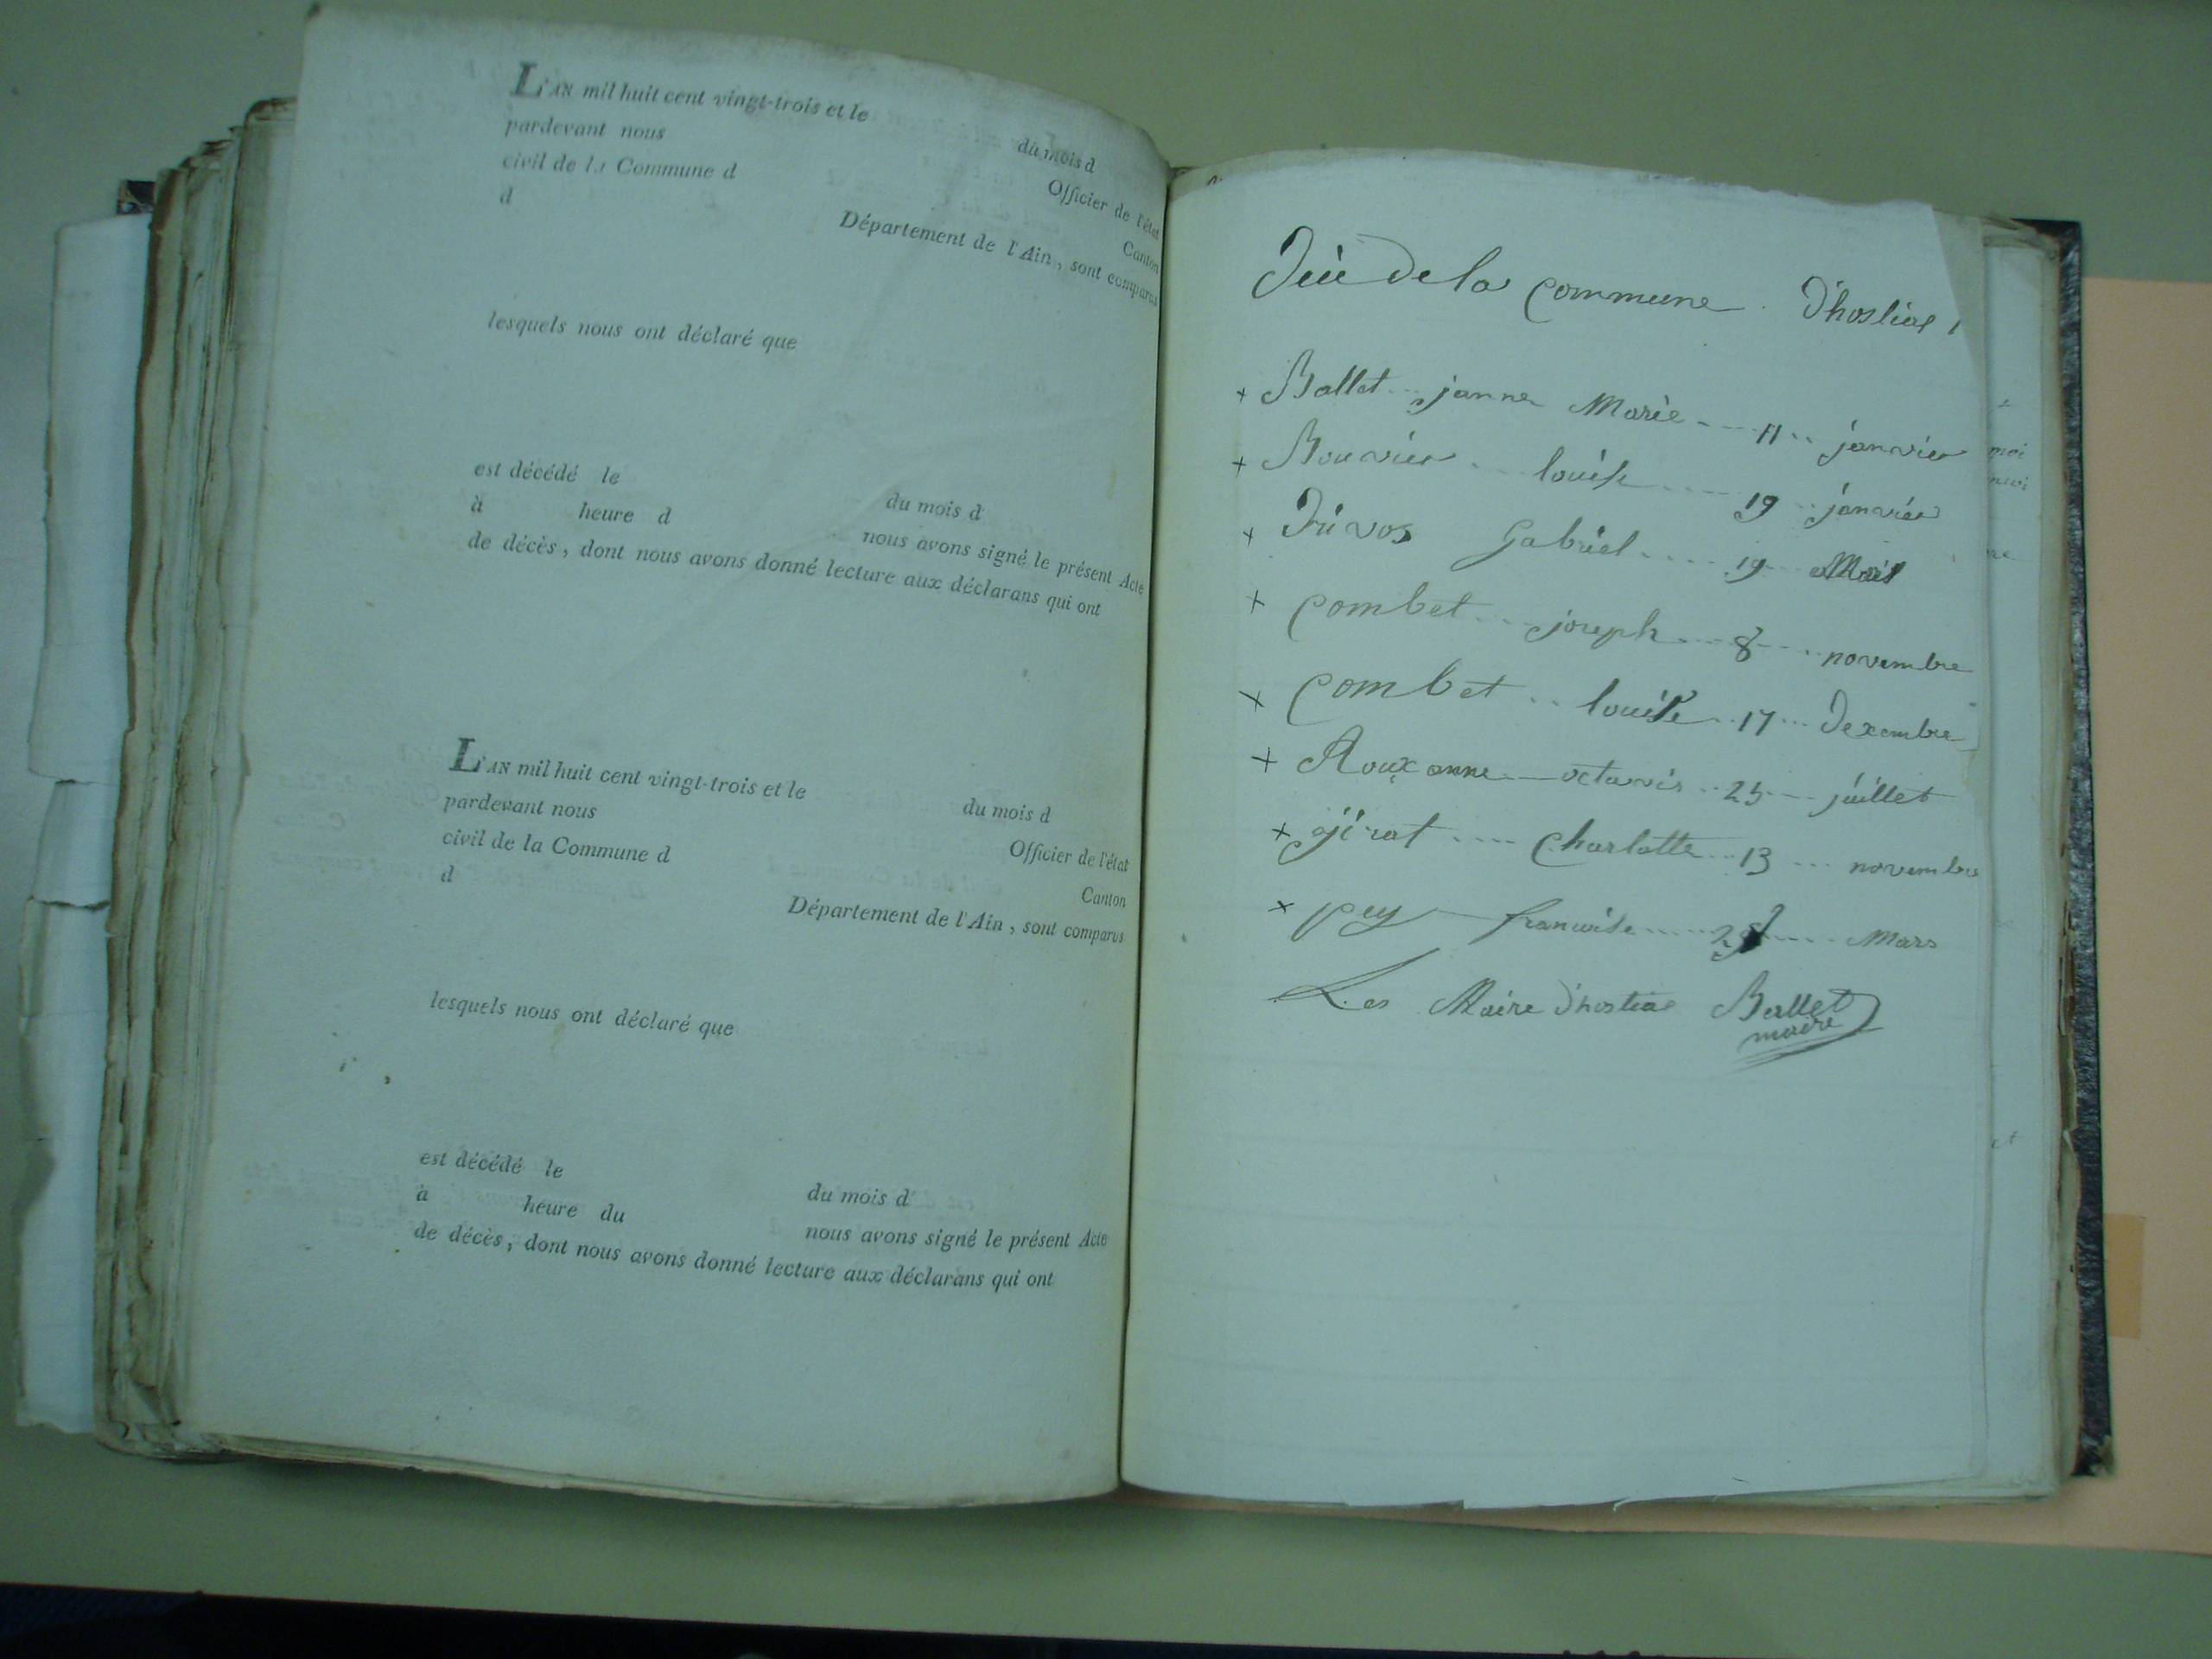 L'AN mil huit cent vingt-trois et le du mois d
pardevant nous Officier de l'état
civil de la Commune d Canton
d Département de l'Ain, sont comparus
lesquels nous ont déclaré que
est décédé le du mois d
à heure d nous avons signé le présent Acte
de décès, dont nous avons donné lecture aux déclarans qui ont
L'AN mil huit cent vingt-trois et le du mois d
pardevant nous Officier de l'état
civil de la Commune d Canton
d Département de l'Ain, sont comparus
lesquels nous ont déclaré que
est décédé le du mois d
à heure du nous avons signé le présent Acte
de décès, dont nous avons donné lecture aux déclarans qui ont
de la commune D'hostias
+ Ballet janne Marie 11 janvier
+ Bouvier louise 19 janvier
+ Gabriel 19
+ Combet joseph 8 novembre
+ Combet louise 17 Dexembre
+ Roux anne octavie 25 juillet
+ jirat Charlotte 13 novembre
+ pey francoise Mars
Les Maire D'hostias Ballet
maire